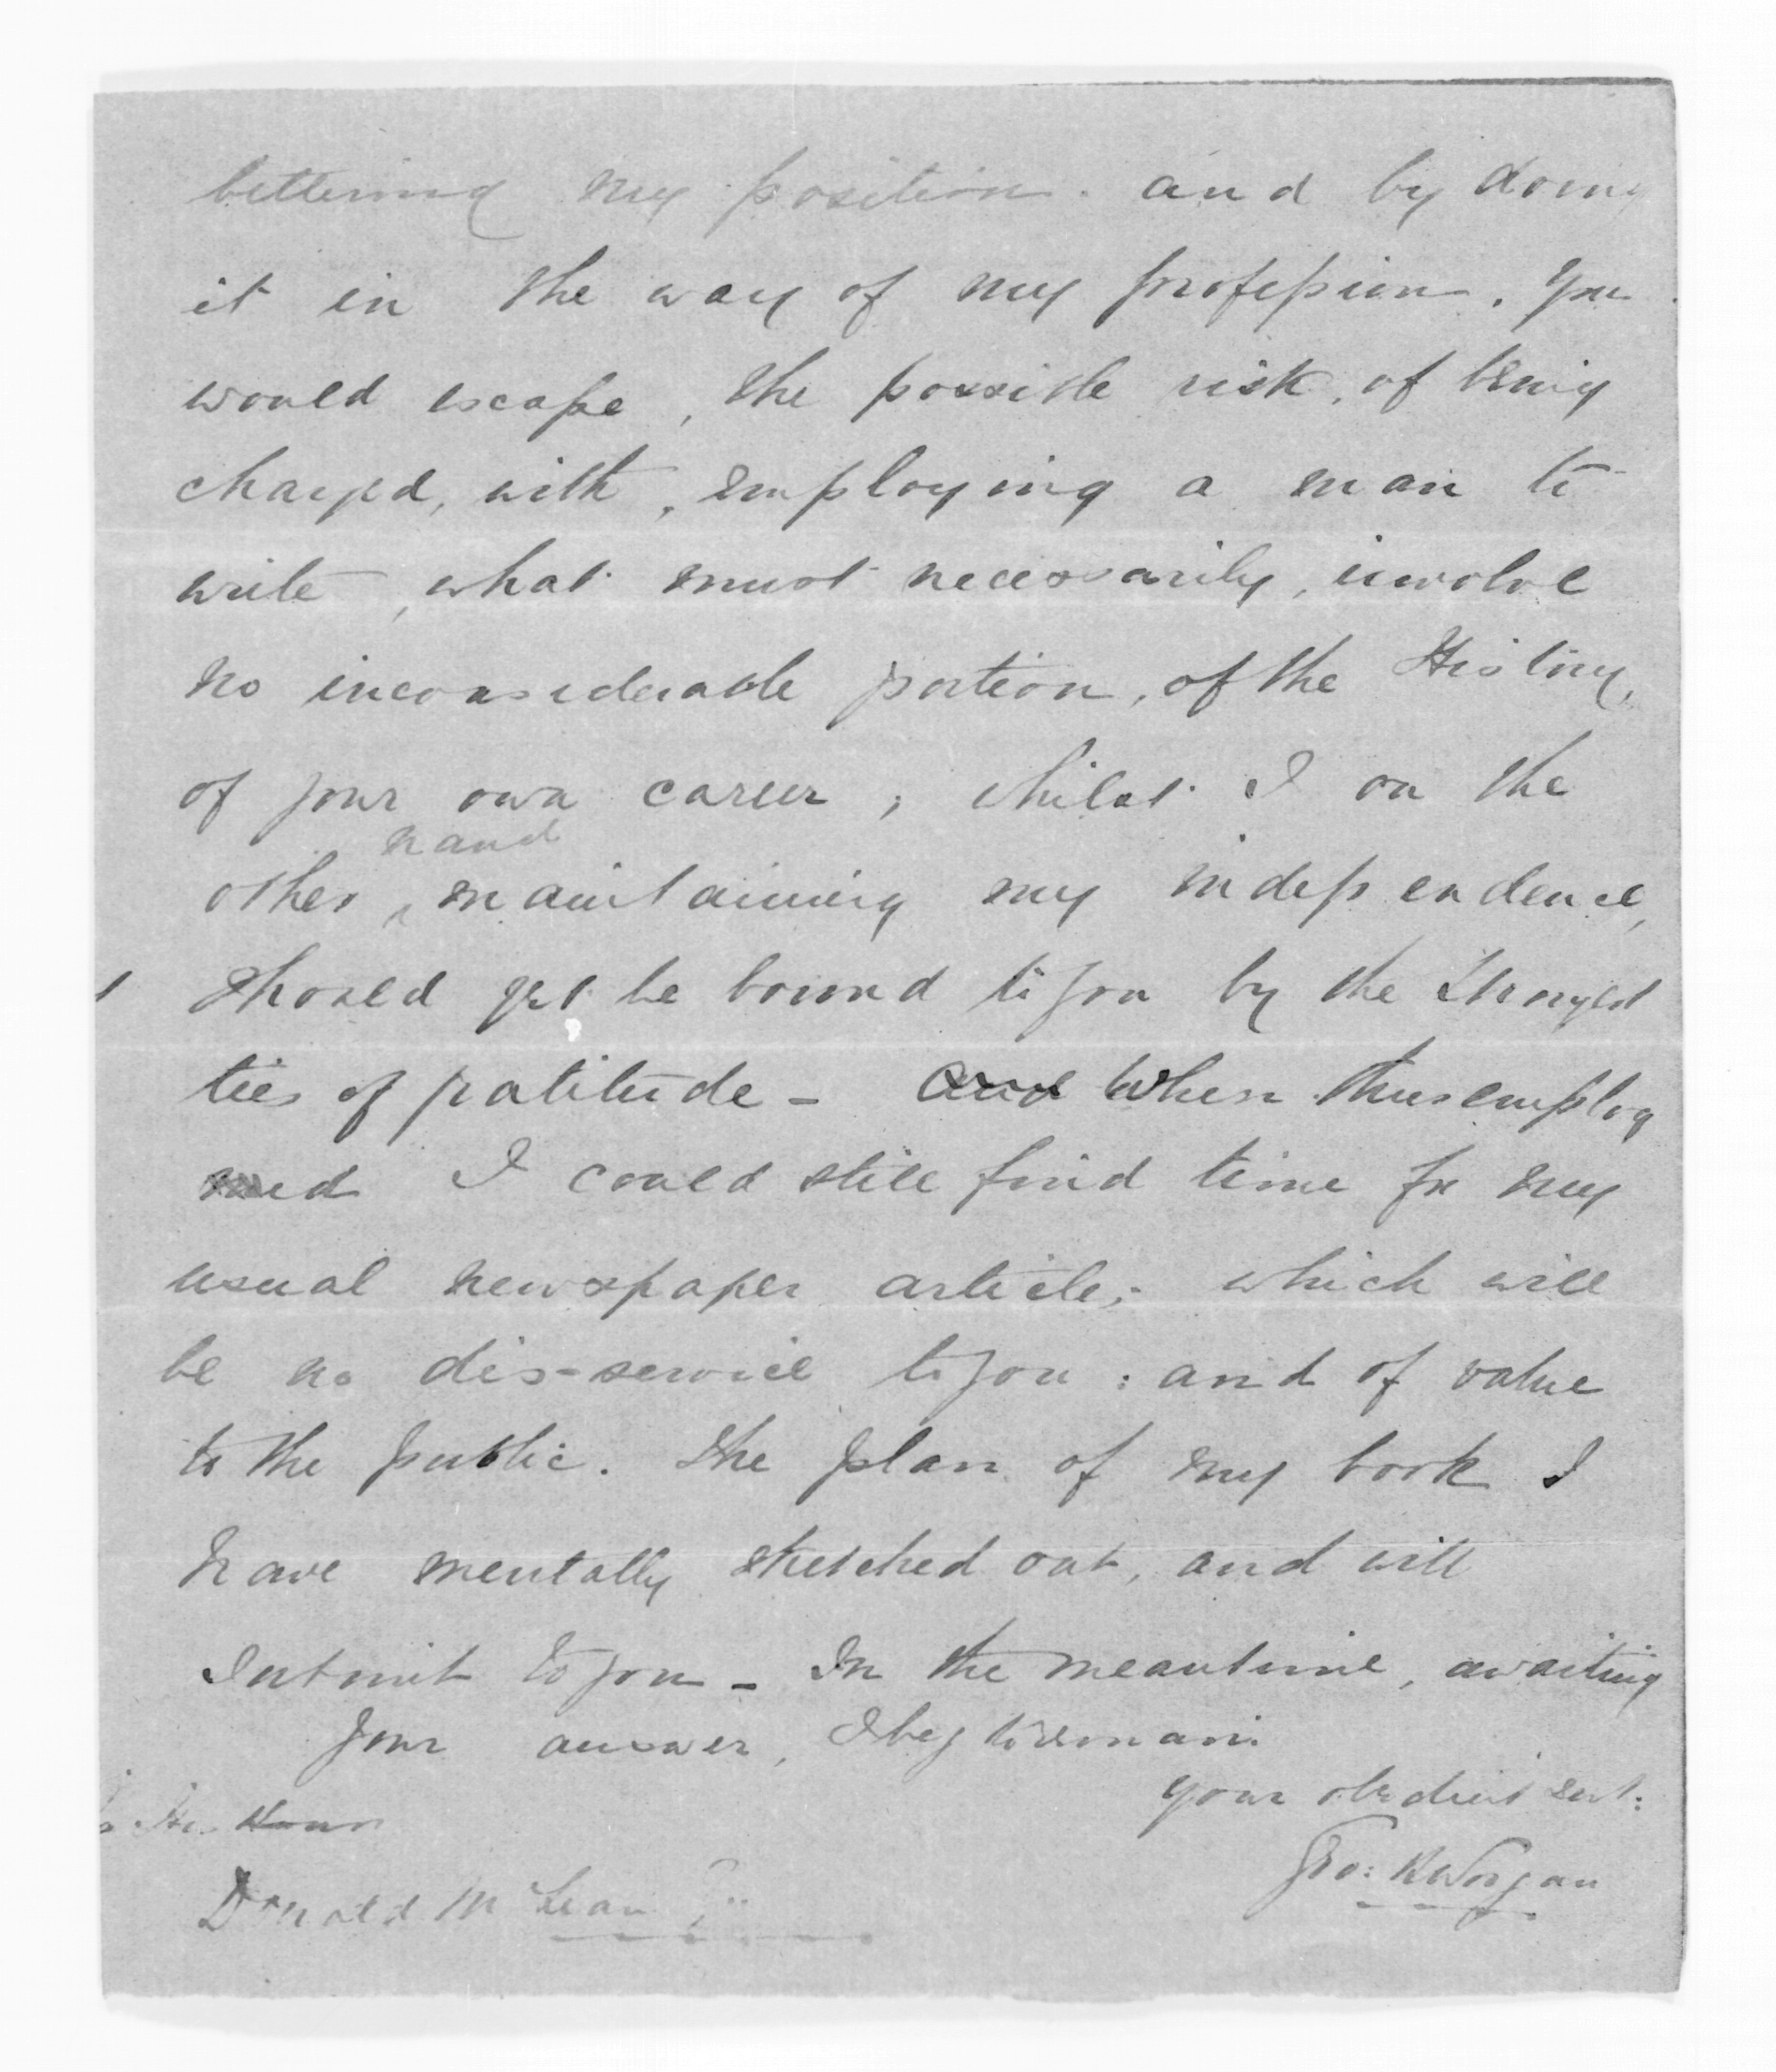 bettering my position. and by doing
it in the way of my profession, you
would escape, the possible risk, of being
charged, with, employing a man to
write, what must necessarily, involve
no inconsiderable portion, of the History,
of your own career; whilst I on the
hand
other, maintaining my independence,
should yet be bound to you by the strongest
ties of gratitude - and When thus employ
ed I could still find time for my
usual newspaper article; which will
be no dis-service to you: and of value
to the public. The plan of my book I
have mentally sketched out, and will
submit to you - In the meantime, awaiting
your answer, I beg to remain
your obedient Servt:
To His Honor
Geo: Worgan
Donald McLean